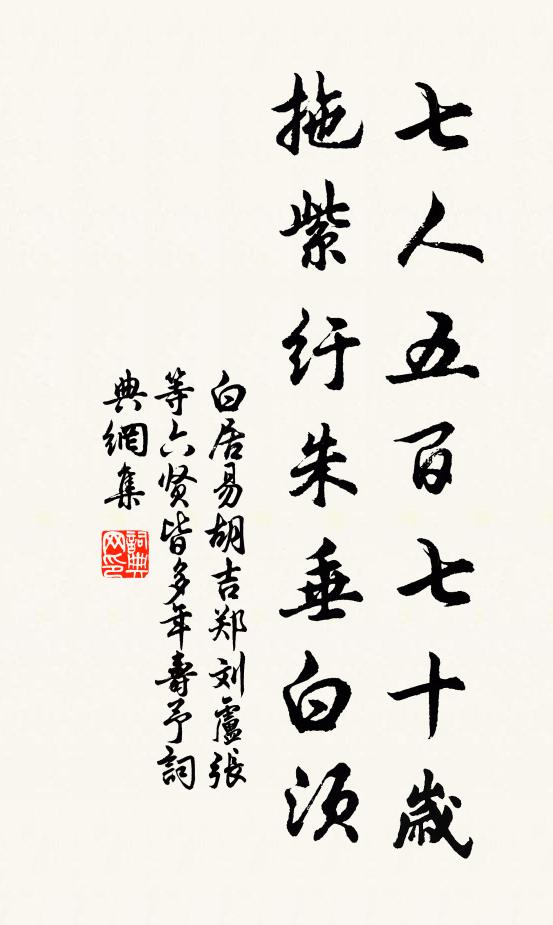 七人五百七十歲
拖紫纡朱垂白须
白居易胡吉郑刘盧張
等六贤皆多年壽予詞
典網集
詞典网印